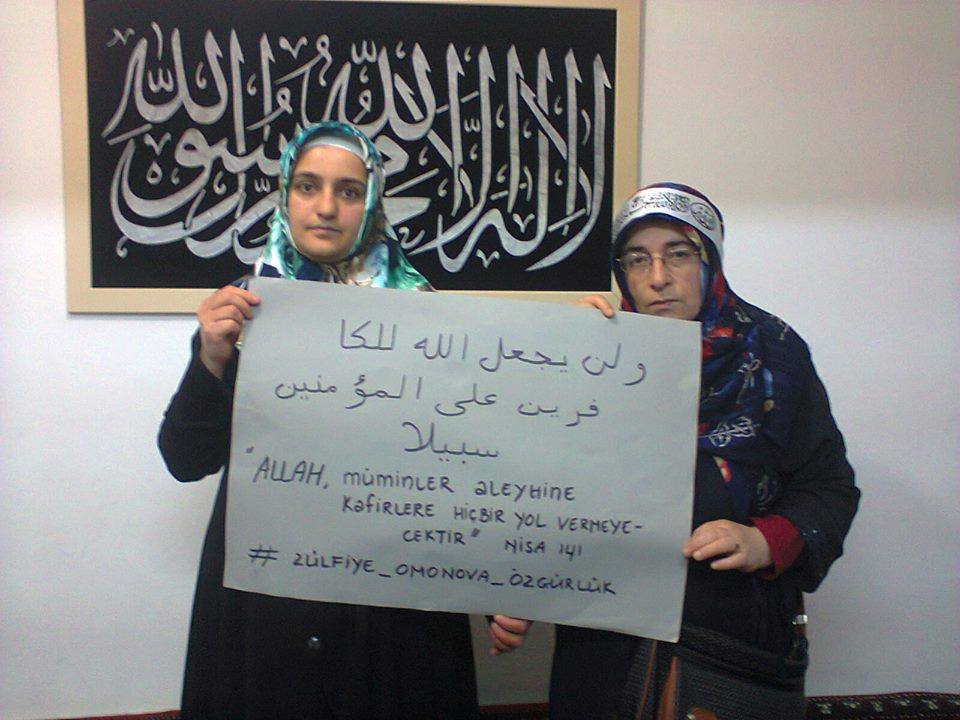 لا إله إلا الله محمد رسول الله
ولن يجعل الله للكا
فرين على المؤمنين
سبيلا
"ALLAH, MÜMİNLER ALEYHİNE
KAFİRLERE HİÇBİR YOL VERMEYE-
CEKTİR" NİSA 141
# ZÜLFİYE_OMONOVA_ÖZGÜRLÜK